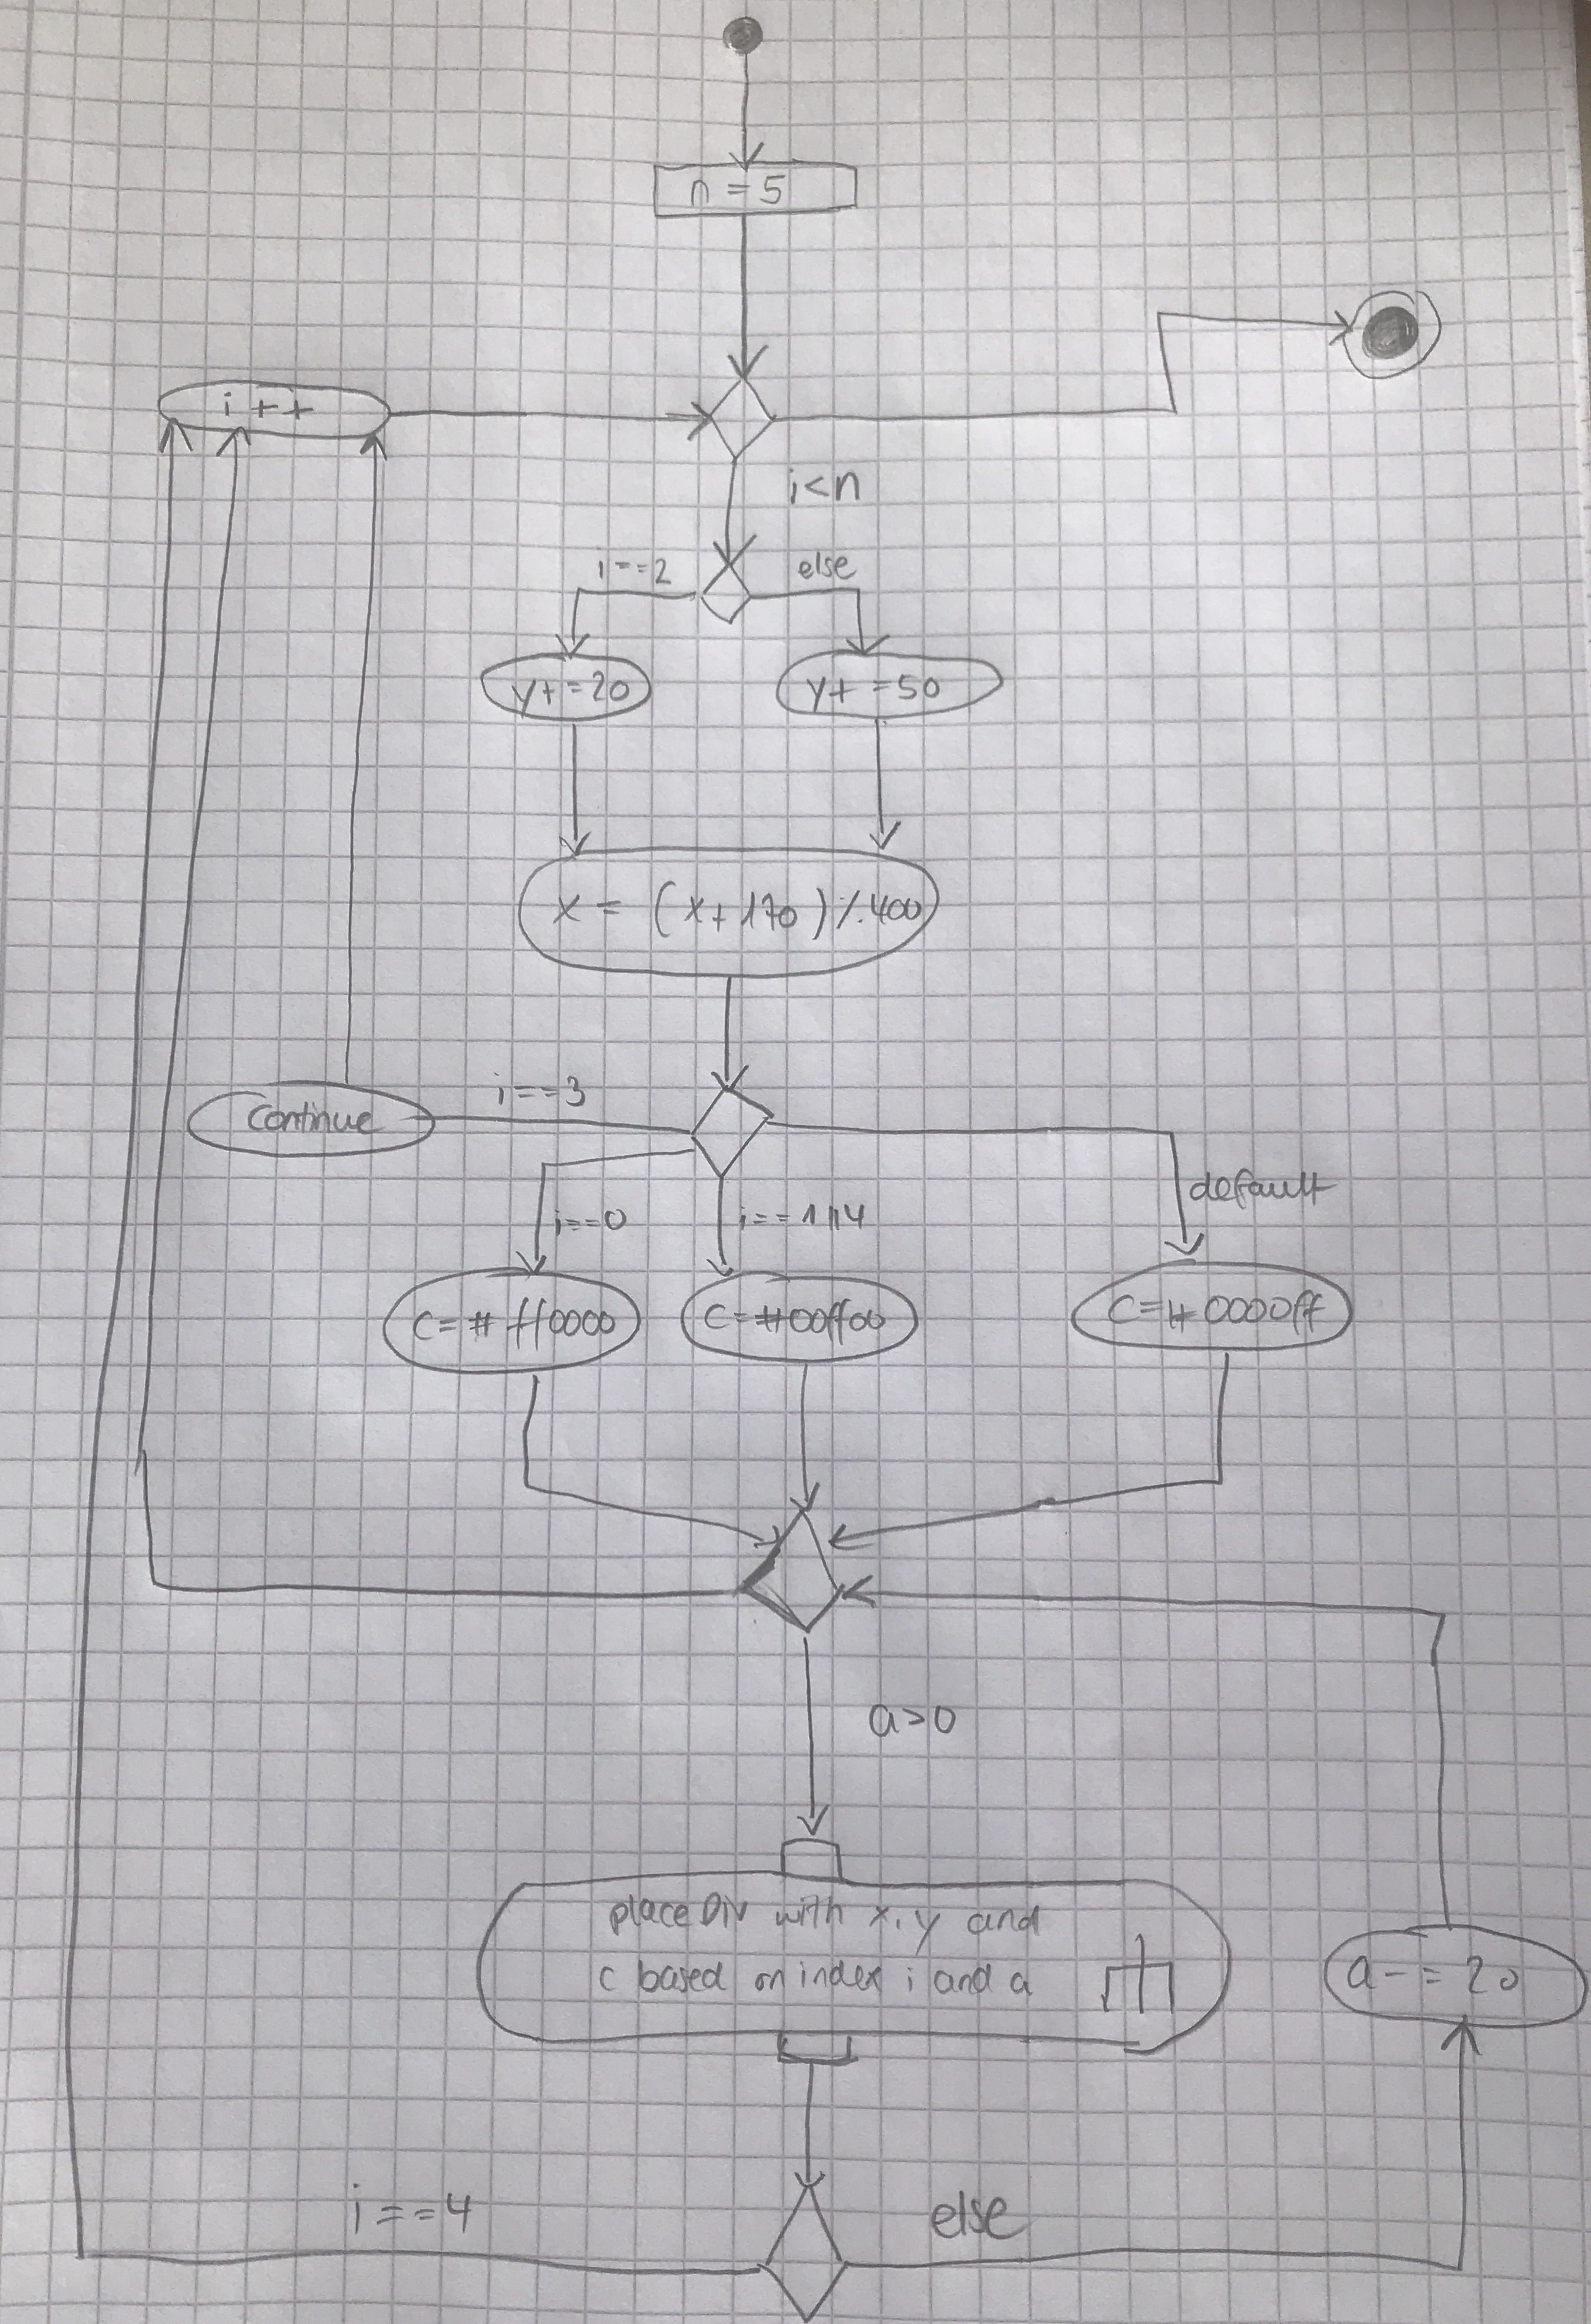 n = 5
i ++
i<n
i==2
else
y+=20
y+ =50
x = (x+170)%400
i==3
continue
default
i==0
i==1||4
c=#ff0000
c=#00ff00
c=#0000ff
a>0
place Div with x, y and
c based on index i and a
a-=20
i==4
else